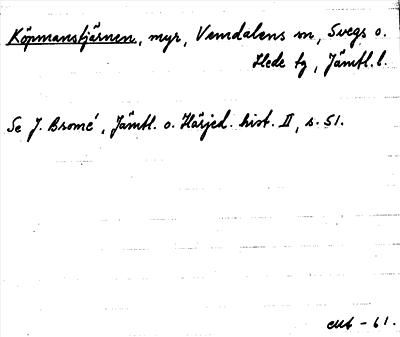 Köpmanstjärnen, myr, Vemdalens sn, Svegs o.
Hede tg, Jämtl. l.
Se J. Bromé, Jämtl. o. Härjed. hist. II, s. 51.
-61.